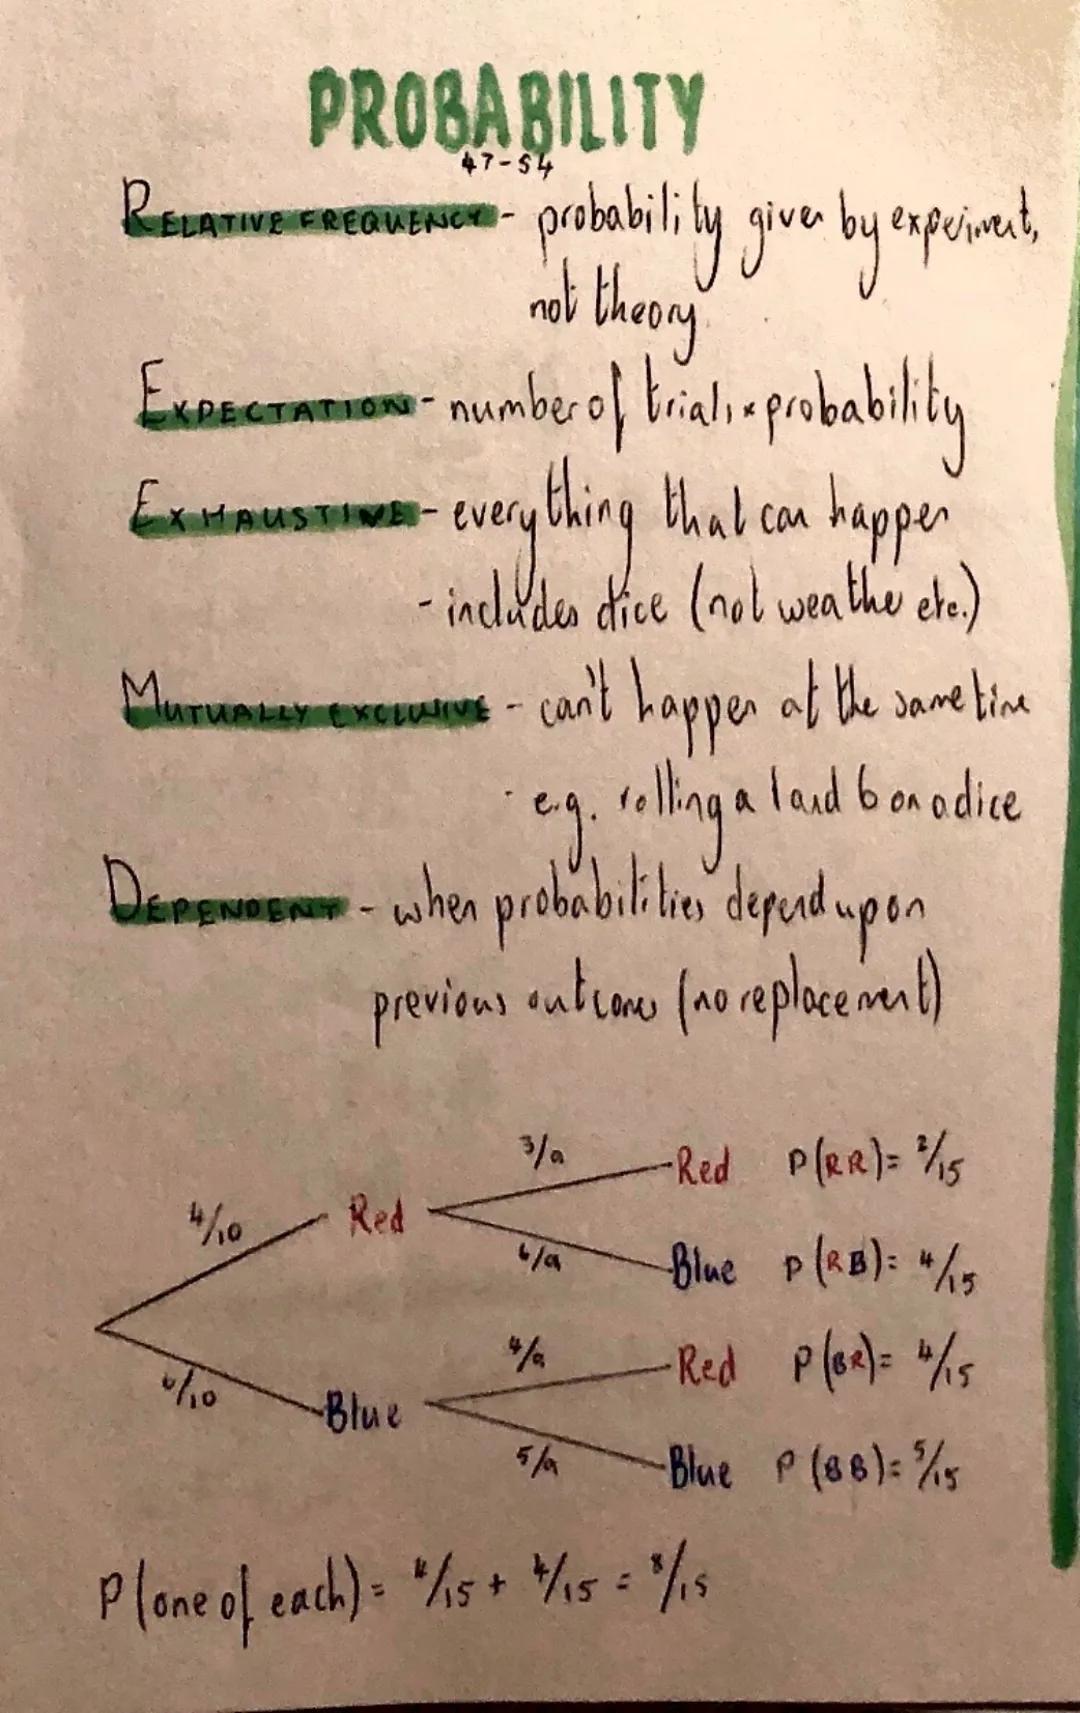 PROBABILITY
47-54
RELATIVE FREQUENCY - probability given by experiment,
not theory.
EXPECTATION - number of trials × probability
EXHAUSTIVE - everything that can happen
- includes dice (not weather etc.)
MUTUALLY EXCLUSIVE - can't happen at the same time
- e.g. rolling a 1 and 6 on a dice
DEPENDENT - when probabilities depend upon
previous outcomes (no replacement)
3/9
Red P(RR)= 2/15
4/10 Red
6/9
Blue P(RB)= 4/15
4/9
Red P(BR)= 4/15
6/10 Blue
5/9
Blue P(BB)= 5/15
P(one of each) = 4/15 + 4/15 = 8/15